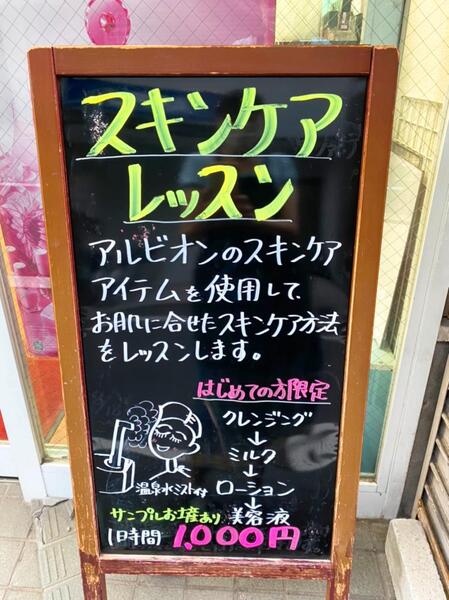 スキンケア
レッスン
アルビオンのスキンケア
アイテムを使用して、
お肌に合せたスキンケア方法
をレッスンします。
はじめての方限定
クレンジング
↓
ミルク
↓
ローション
↓
美容液
温泉水ミスト付
サンプルお土産あり
1時間 1,000円